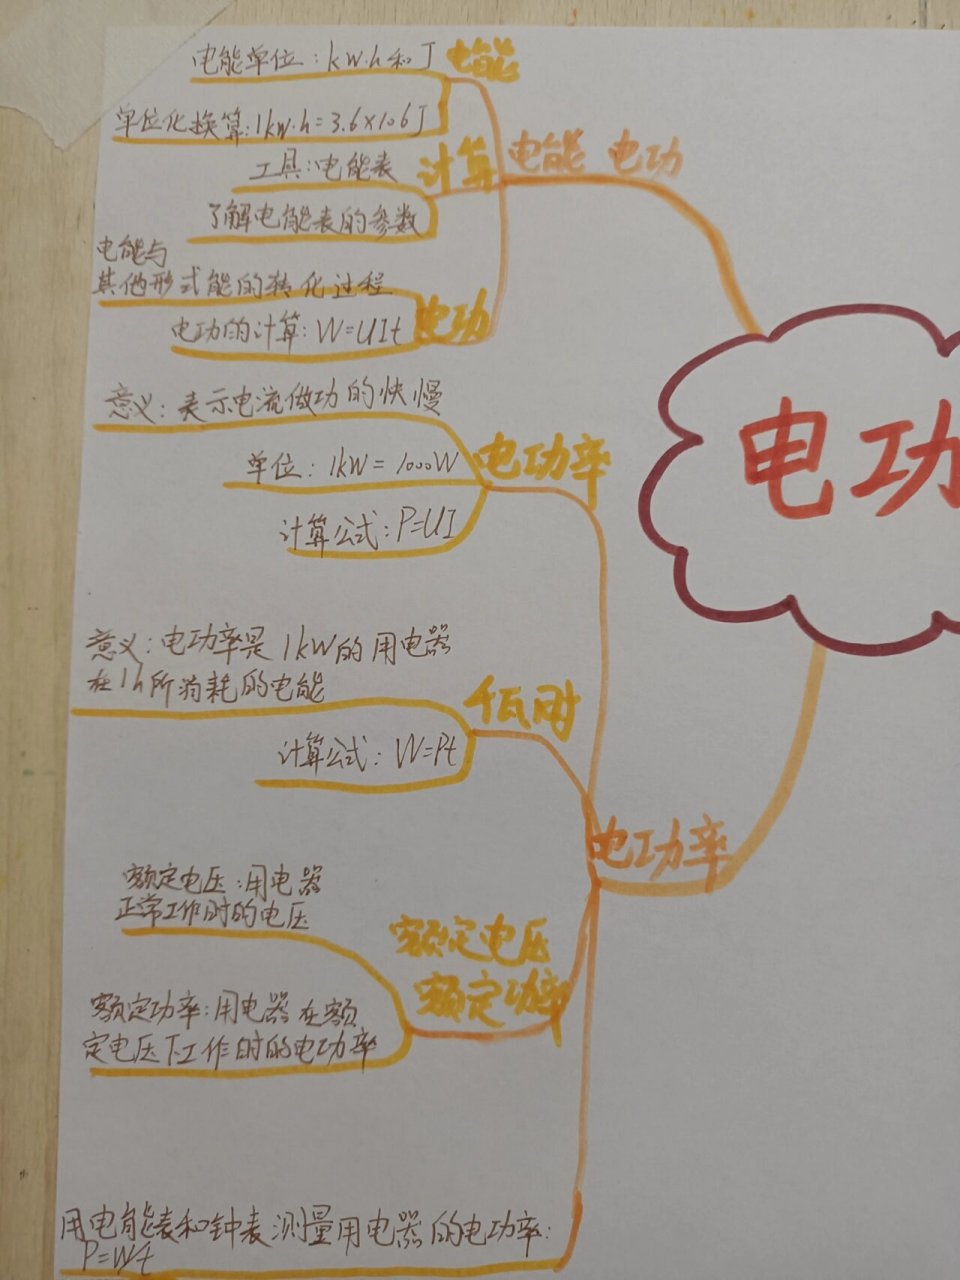 电能单位：kw.h和J
电能
单位化换算：1kw·h=3.6×106J
工具：电能表
计算
电能 电功
了解电能表的参数
电能与
其他形式能的转化过程
电功的计算：W=UIt
电功
意义：表示电流做功的快慢
单位：1kW=1000W
电功率
计算公式：P=UI
电功
意义：电功率是1kW的用电器
在1h所消耗的电能
千瓦时
计算公式：W=Pt
电功率
额定电压：用电器
正常工作时的电压
额定电压
额定功率
额定功率：用电器在额
定电压下工作时的电功率
用电能表和钟表测量用电器的电功率：
P=W/t